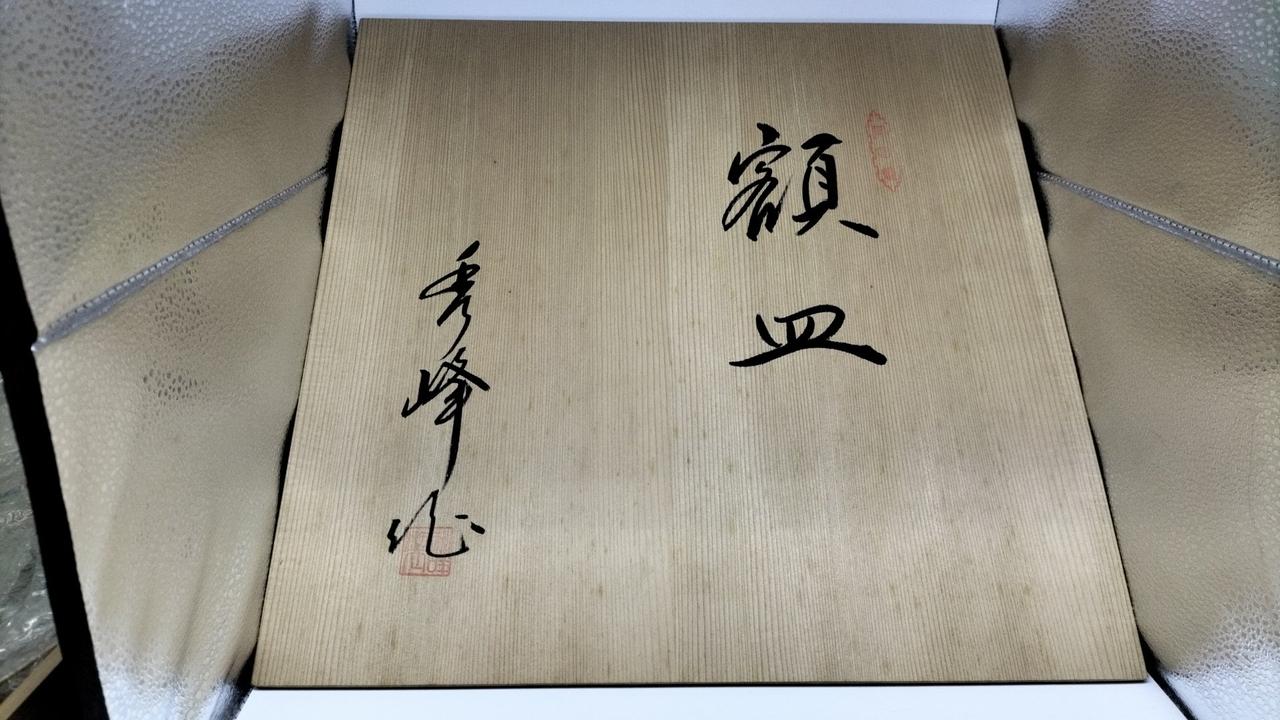 額皿
秀峰作